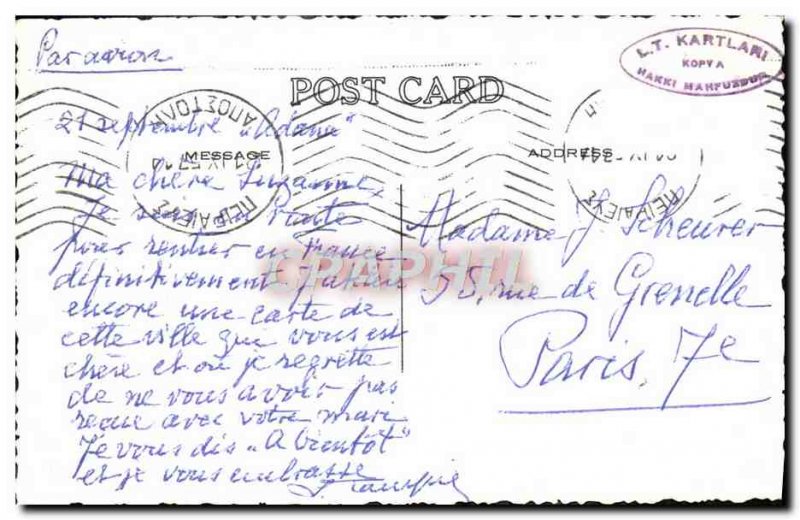 Par avion
L.T. KARTLARI
KOPYA
HAKKI MAHFUZDUR
POST CARD
ΑΠΟΣΤΟΛΗ
ΠΕΙΡΑΙΕΥΣ
ΠΕΙΡΑΙΕΥΣ
21 septembre "Adana"
MESSAGE
ADDRESS
Ma chère Suzanne,
Je suis en route
pour rentrer en France
définitivement J'achète
encore une carte de
cette ville que vous est
chère et où je regrette
de ne vous avoir pas
reçue avec votre mari
Je vous dis "A bientôt"
et je vous embrasse
Madame J. Scheurer
rue de Grenelle
Paris. 7e
CPAPHIL